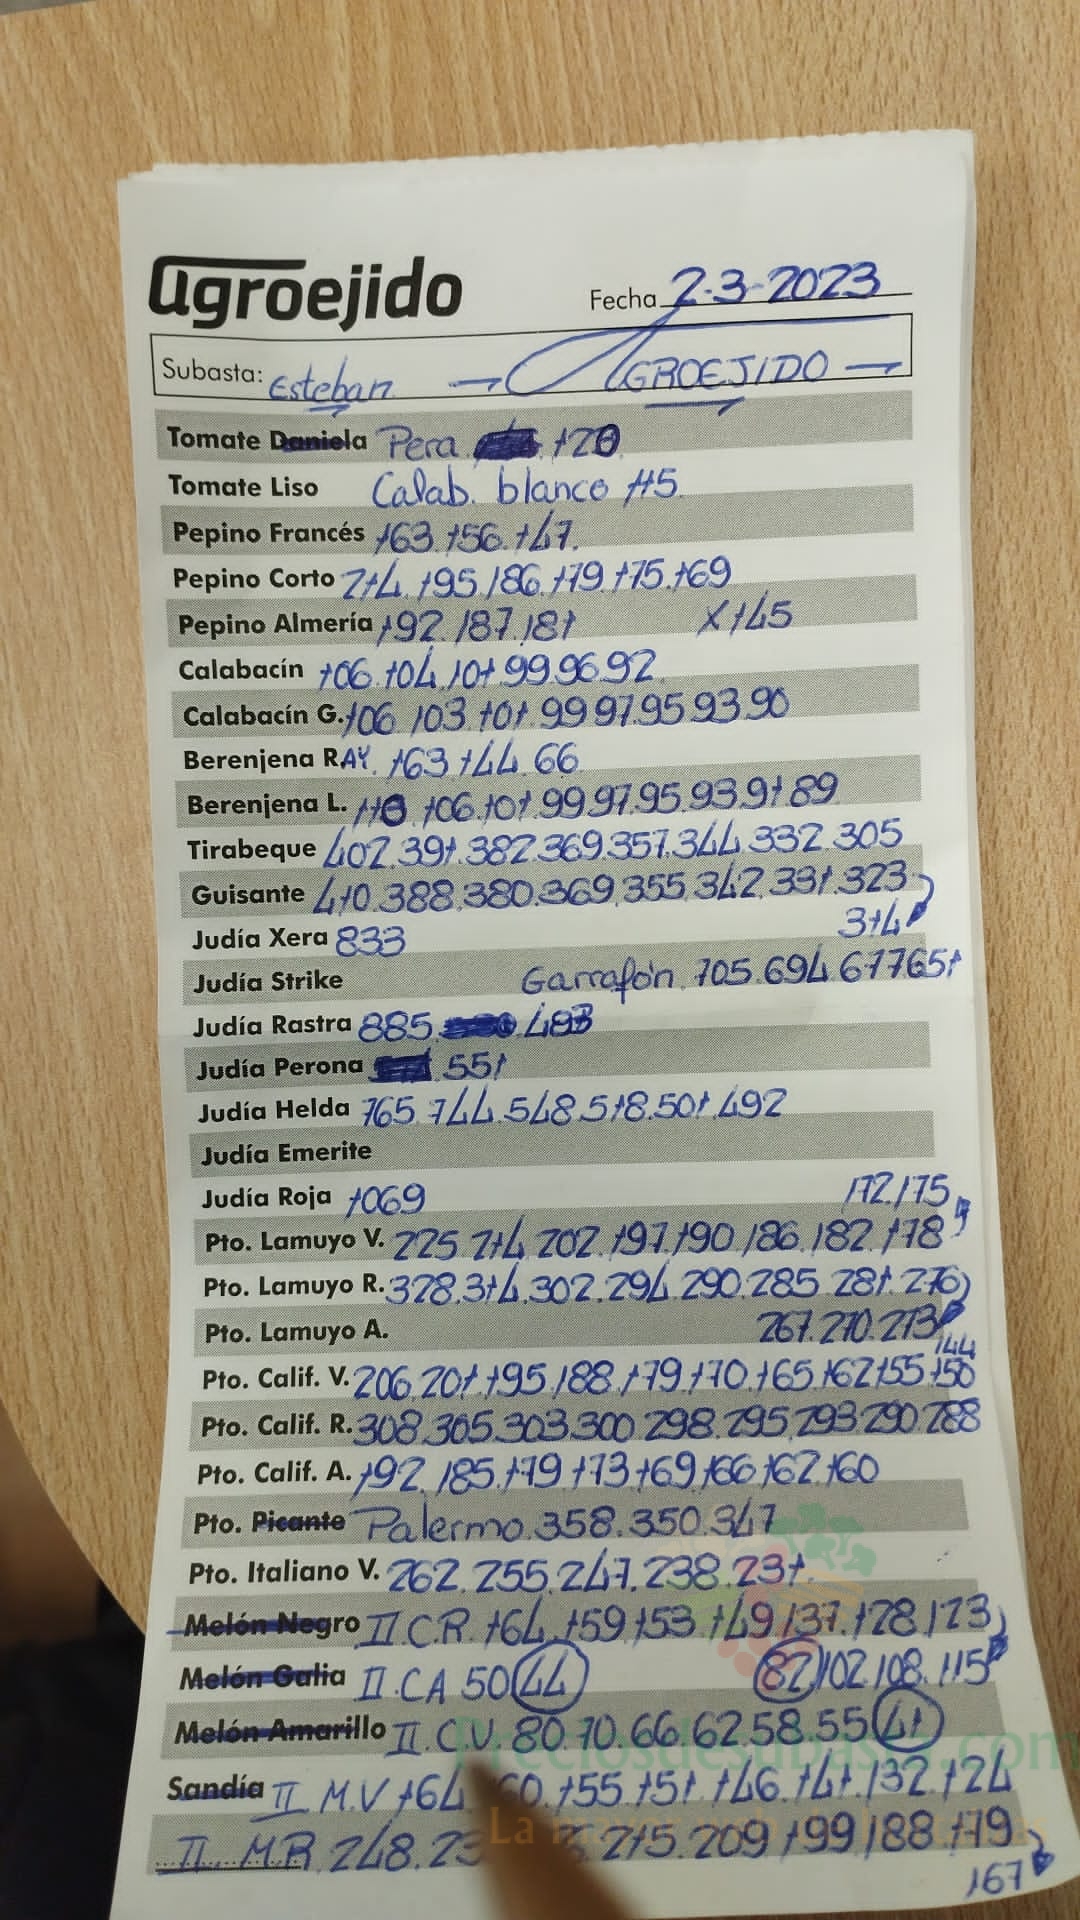 agroejido
Fecha 2-3-2023
Subasta: Esteban → AGROEJIDO →
Tomate Daniela Pera 120
Tomate Liso Calab. blanco 115
Pepino Francés 163.156.147.
Pepino Corto 214.195.186.179.175.169
Pepino Almería 192.187.181 X145
Calabacín 106.104.101.99.96.92
Calabacín G. 106.103.101.99.97.95.93.90
Berenjena RAY. 163.144.66
Berenjena L. 110.106.101.99.97.95.93.91.89
Tirabeque 402.391.382.369.357.344.332.305
Guisante 410.388.380.369.355.342.331.323
314
Judía Xera 833
Judía Strike Garrafón 705.694.677.651
Judía Rastra 885 493
Judía Perona 551
Judía Helda 765.744.548.518.501.492
Judía Emerite
Judía Roja 1069 172.175
Pto. Lamuyo V. 225.214.202.197.190.186.182.178
Pto. Lamuyo R. 328.314.302.294.290.285.281.276
Pto. Lamuyo A. 267.270.273
144
Pto. Calif. V. 206.201.195.188.179.170.165.162.155.150
Pto. Calif. R. 308.305.303.300.298.295.293.290.288
Pto. Calif. A. 192.185.179.173.169.166.162.160
Pto. Picante Palermo 358.350.347
Pto. Italiano V. 262.255.247.238.231.
Melón Negro II C.R. 164.159.153.149.137.128.123
Melón Galia II.CA 50 44 82 102.108.115
Melón Amarillo II C.V. 80.70.66.62.58.55 41
Sandía II M.V 164 60.155.151.146.141.132.124
II M.R 248.23 215.209.199.188.179
167
Preciosdesubasta.com
La